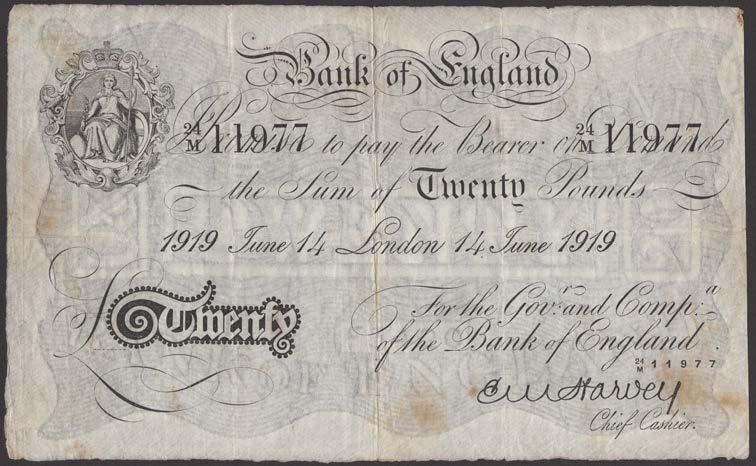 Bank of England
I Promise to pay the Bearer on Demand
24/M 11977 24/M 11977
the Sum of Twenty Pounds
1919 June 14 London 14 June 1919
£ Twenty
For the Gov.r and Comp.a
of the Bank of England.
24/M 11977
E M Harvey
Chief Cashier.